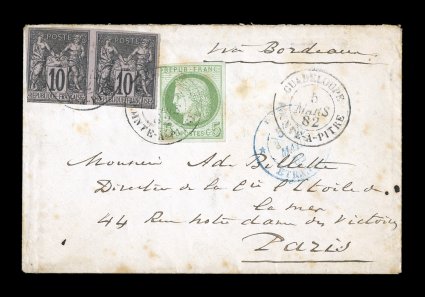 POSTE POSTE
10 10
REPUB. FRANC.
5 POSTES 5
via Bordeaux
GUADELOUPE
5
MARS
82
POINTE-A-PITRE
Monsieur Ad. Billette
Director de la Cie l'Etoile de
la mer
44 Rue notre dame des Victoires
Paris